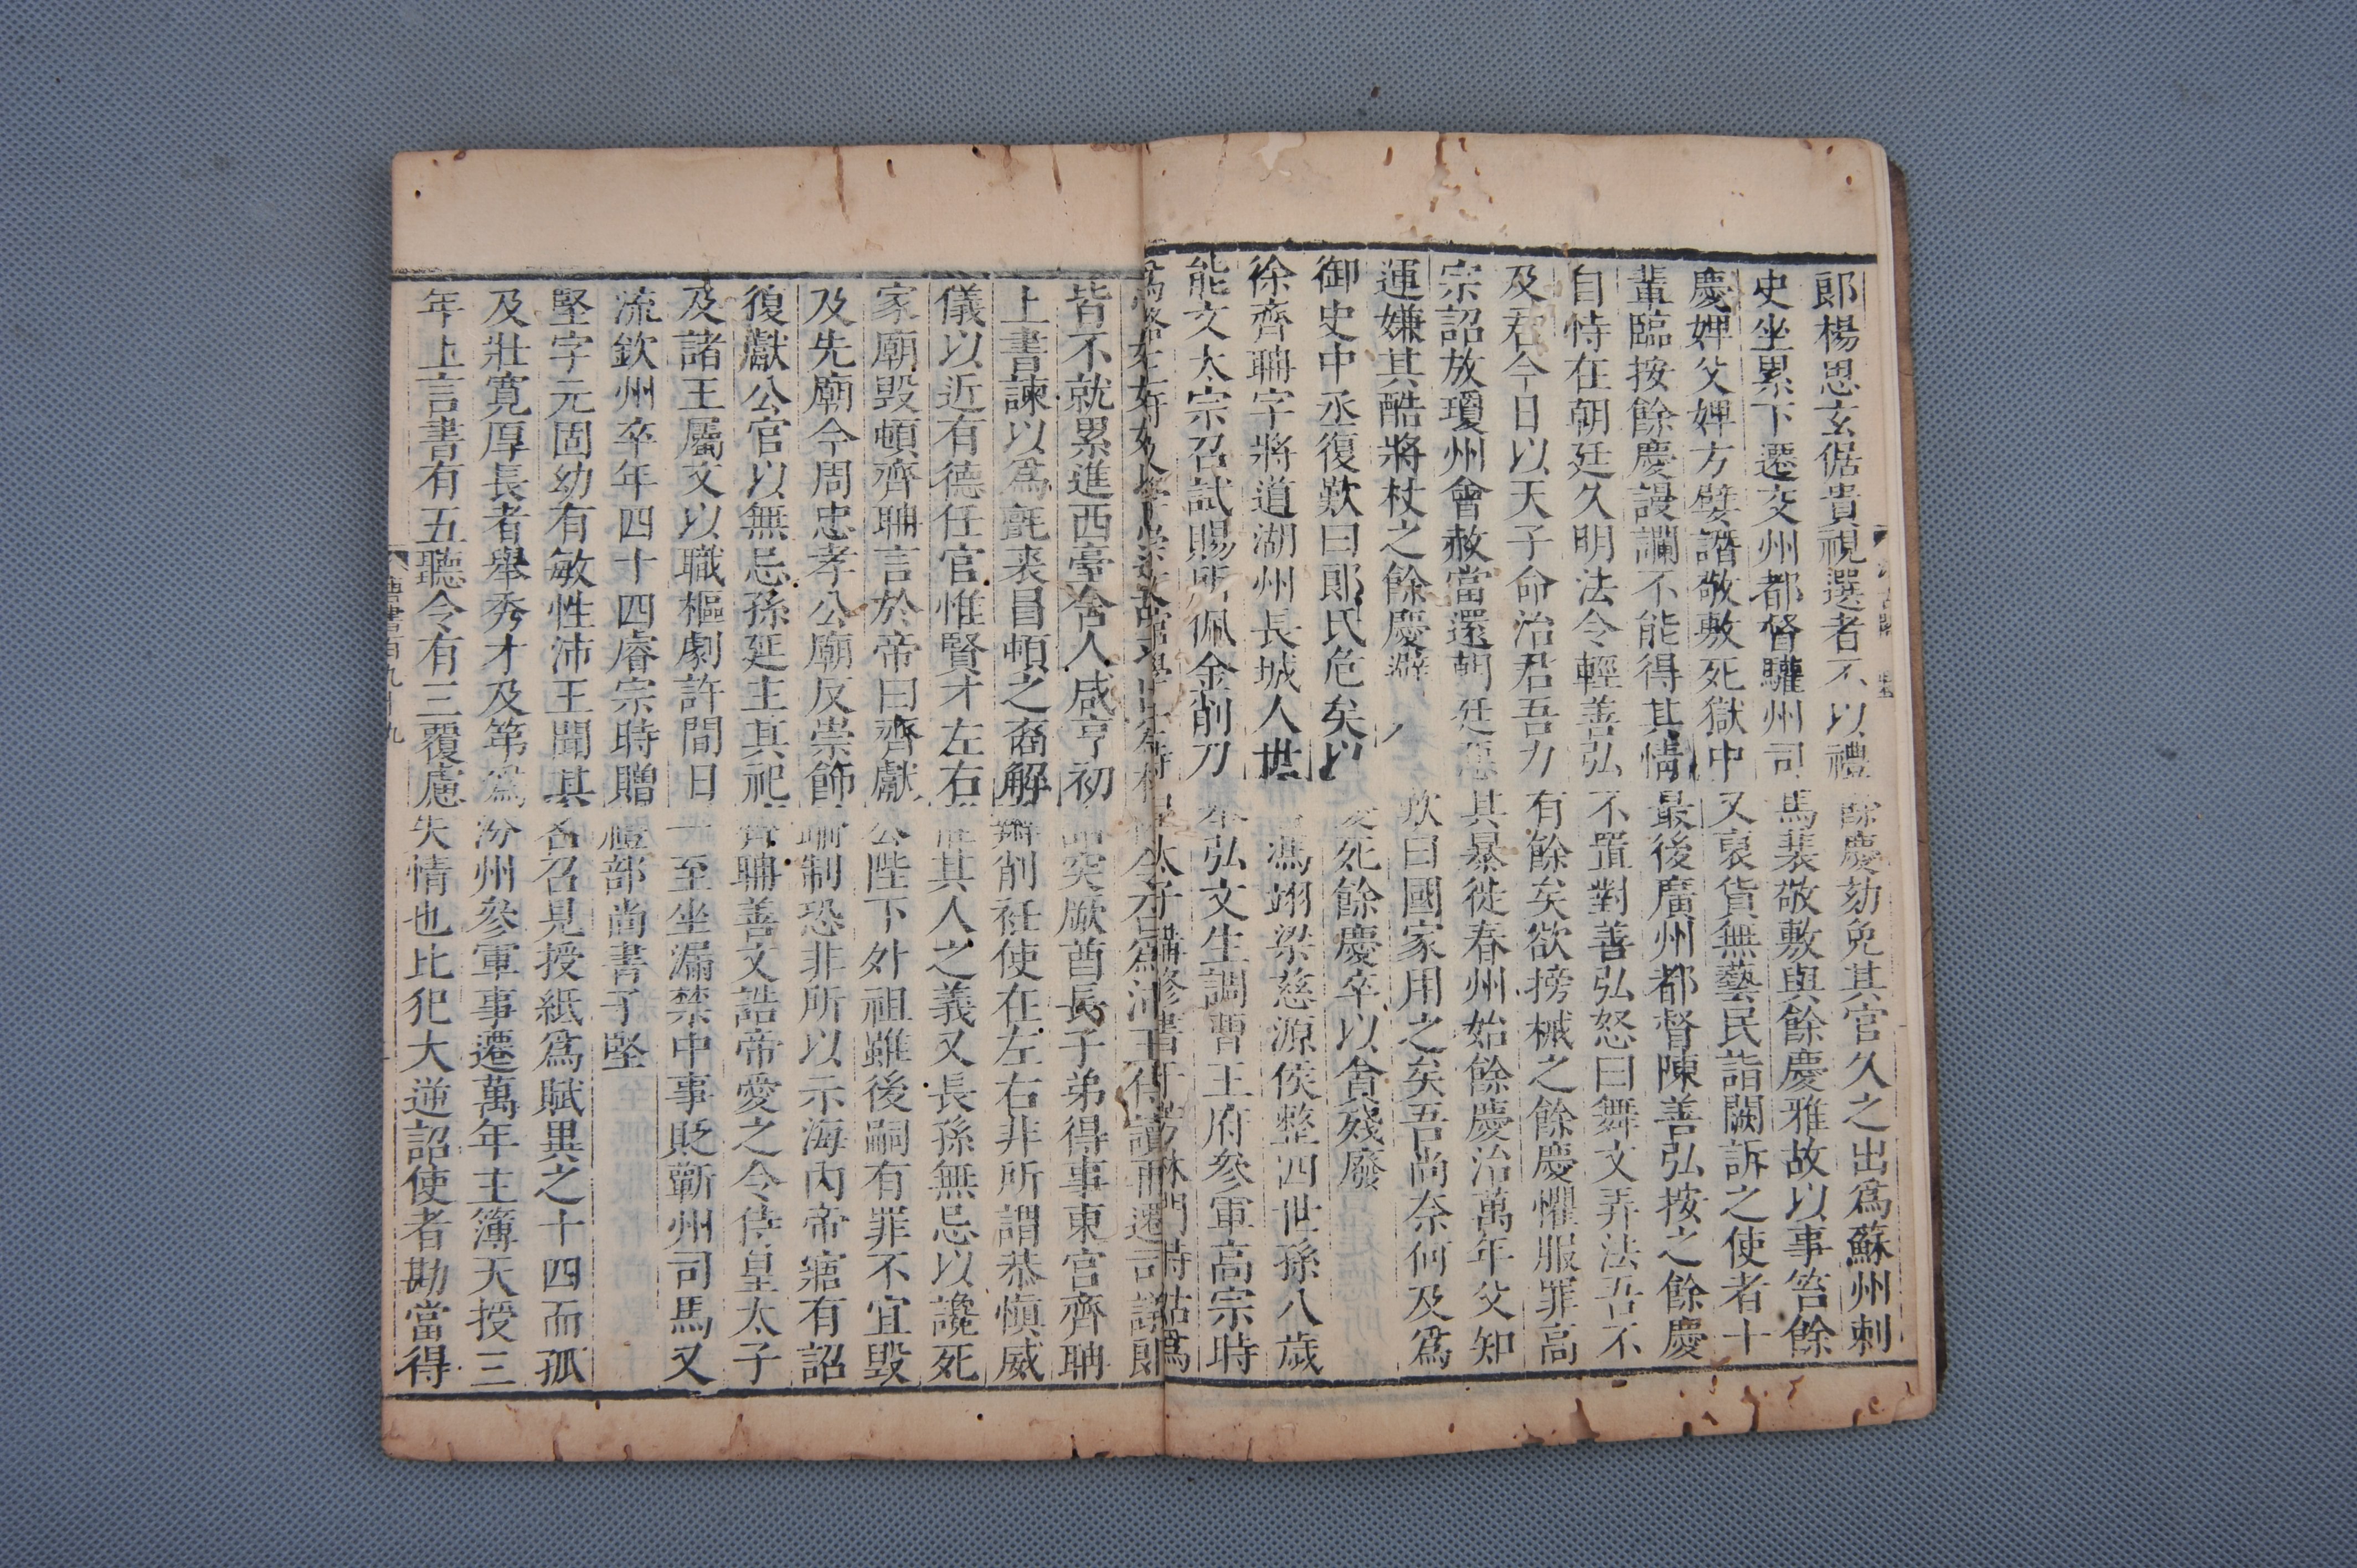 郎楊思玄倨貴視選者不以禮餘慶劾免其官久之出爲蘇州刺
史坐累下遷交州都督驩州司馬裴敬敷與餘慶雅故以事笞餘
慶婢父婢方嬖譖敬敷死獄中又裒貨無藝民詣闕訴之使者十
輩臨按餘慶謾讕不能得其情最後廣州都督陳善弘按之餘慶
自恃在朝廷久明法令輕善弘不置對善弘怒曰舞文弄法吾不
及君今日以天子命治君吾力有餘矣欲搒械之餘慶懼服罪高
宗詔放瓊州會赦當還朝廷惡其暴徙春州始餘慶治萬年父知
運嫌其酷將杖之餘慶避 歎曰國家用之矣吾尚奈何及爲
御史中丞復歎曰郎氏危矣以憂死餘慶卒以貪殘廢
徐齊聃字將道湖州長城人世 馮翊梁慈源侯整四世孫八歲
能文太宗召試賜所佩金削刀舉弘文生調曹王府參軍高宗時
皆不就累進西臺舍人咸亨初詔突厥酋長子弟得事東宮齊聃
上書諫以爲氈裘冒頓之裔解辮削衽使在左右非所謂恭愼威
儀以近有德任官惟賢才左右惟其人之義又長孫無忌以讒死
家廟毀頓齊聃言於帝曰齊獻公陛下外祖雖後嗣有罪不宜毀
及先廟今周忠孝公廟反崇飾踰制恐非所以示海內帝寤有詔
復獻公官以無忌孫延主其祀齊聃善文誥帝愛之令侍皇太子
及諸王屬文以職樞劇許間日一至坐漏禁中事貶蘄州司馬又
流欽州卒年四十四睿宗時贈禮部尚書子堅
堅字元固幼有敏性沛王聞其名召見授紙爲賦異之十四而孤
及壯寬厚長者舉秀才及第爲汾州參軍事遷萬年主簿天授三
年上言書有五聽令有三覆慮失情也比犯大逆詔使者勘當得
唐書百九十九